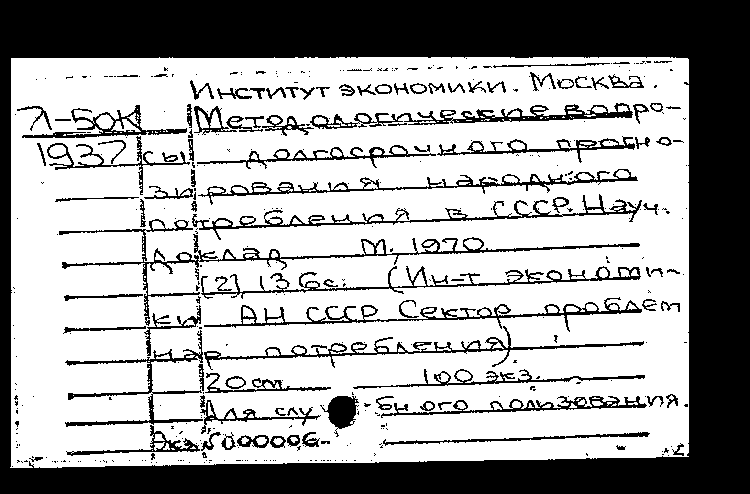 Институт экономики. Москва.
Л-50К Методологические вопро-
1937 сы долгосрочного прогно-
зирования народного
потребления в СССР. Науч.
доклад М, 1970
[2] 136с. (Ин-т экономи-
ки АН СССР Сектор проблем
нар потребления)
20 см. 100 экз.
Для слу бного пользования.
Экз N000006-